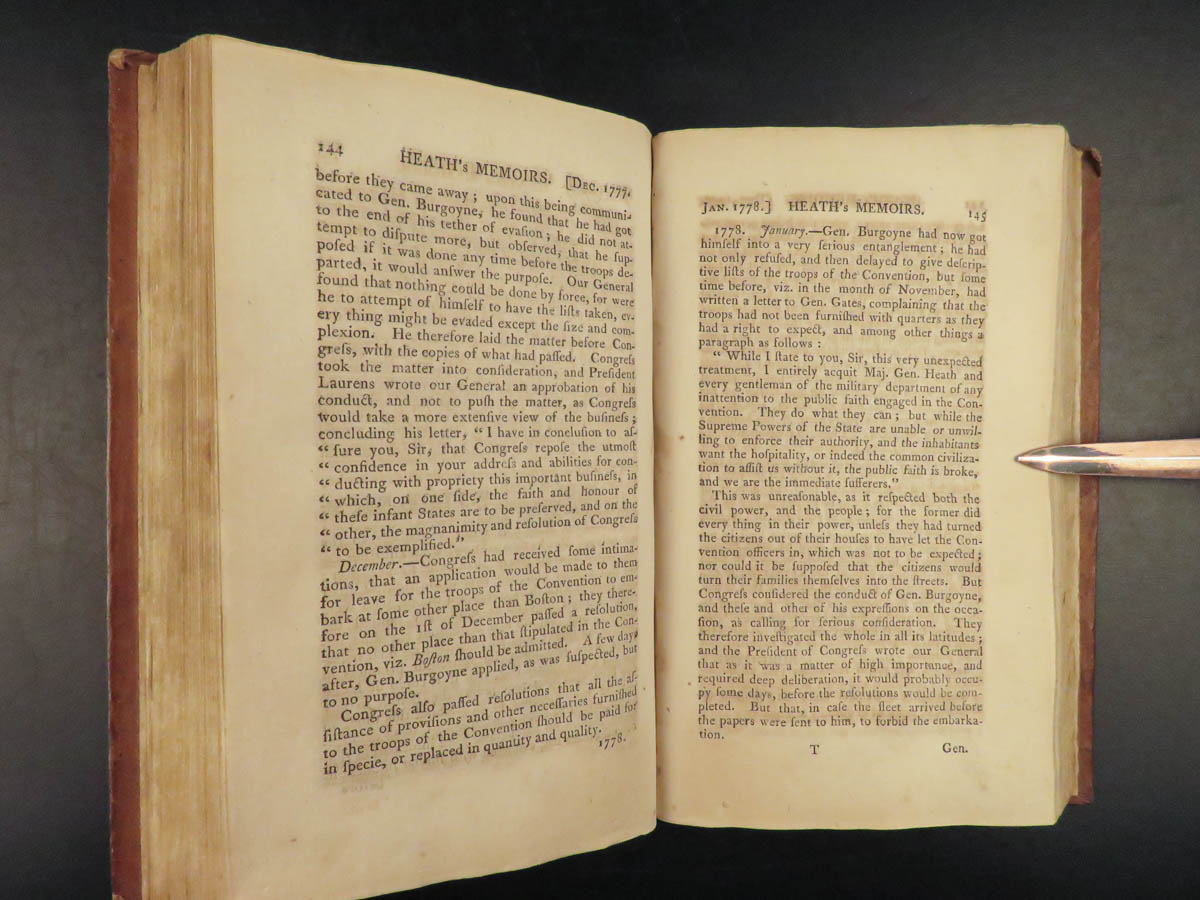 144 HEATH's MEMOIRS. [DEC. 1777.
before they came away ; upon this being communi-
cated to Gen. Burgoyne, he found that he had got
to the end of his tether of evaſion ; he did not at-
tempt to diſpute more, but obſerved, that he ſup-
poſed if it was done any time before the troops de-
parted, it would anſwer the purpoſe. Our General
found that nothing could be done by force, for were
he to attempt of himſelf to have the liſts taken, ev-
ery thing might be evaded except the ſize and com-
plexion. He therefore laid the matter before Con-
greſs, with the copies of what had paſſed. Congreſs
took the matter into conſideration, and Preſident
Laurens wrote our General an approbation of his
conduct, and not to puſh the matter, as Congreſs
would take a more extenſive view of the buſineſs ;
concluding his letter, “ I have in concluſion to aſ-
“ ſure you, Sir, that Congreſs repoſe the utmoſt
“ confidence in your addreſs and abilities for con-
“ ducting with propriety this important buſineſs, in
“ which, on one ſide, the faith and honour of
“ theſe infant States are to be preſerved, and on the
“ other, the magnanimity and reſolution of Congreſs
“ to be exemplified.”
December.—Congreſs had received ſome intima-
tions, that an application would be made to them
for leave for the troops of the Convention to em-
bark at ſome other place than Boſton ; they there-
fore on the 1ſt of December paſſed a reſolution,
that no other place than that ſtipulated in the Con-
vention, viz. Boſton ſhould be admitted. A few days
after, Gen. Burgoyne applied, as was ſuſpected, but
to no purpoſe.
Congreſs alſo paſſed reſolutions that all the aſ-
ſiſtance of proviſions and other neceſſaries furniſhed
to the troops of the Convention ſhould be paid for
in ſpecie, or replaced in quantity and quality.
1778.
JAN. 1778.] HEATH's MEMOIRS. 145
1778. January.—Gen. Burgoyne had now got
himſelf into a very ſerious entanglement ; he had
not only refuſed, and then delayed to give deſcrip-
tive liſts of the troops of the Convention, but ſome
time before, viz. in the month of November, had
written a letter to Gen. Gates, complaining that the
troops had not been furniſhed with quarters as they
had a right to expect, and among other things a
paragraph as follows :
“ While I ſtate to you, Sir, this very unexpected
treatment, I entirely acquit Maj. Gen. Heath and
every gentleman of the military department of any
inattention to the public faith engaged in the Con-
vention. They do what they can ; but while the
Supreme Powers of the State are unable or unwil-
ling to enforce their authority, and the inhabitants
want the hoſpitality, or indeed the common civiliza-
tion to aſſiſt us without it, the public faith is broke,
and we are the immediate ſufferers.”
This was unreaſonable, as it reſpected both the
civil power, and the people ; for the former did
every thing in their power, unleſs they had turned
the citizens out of their houſes to have let the Con-
vention officers in, which was not to be expected ;
nor could it be ſuppoſed that the citizens would
turn their families themſelves into the ſtreets. But
Congreſs conſidered the conduct of Gen. Burgoyne,
and theſe and other of his expreſſions on the occa-
ſion, as calling for ſerious conſideration. They
therefore inveſtigated the whole in all its latitudes ;
and the Preſident of Congreſs wrote our General
that as it was a matter of high importance, and
required deep deliberation, it would probably occu-
py ſome days, before the reſolutions would be com-
pleted. But that, in caſe the fleet arrived before
the papers were ſent to him, to forbid the embarka-
tion.
T Gen.